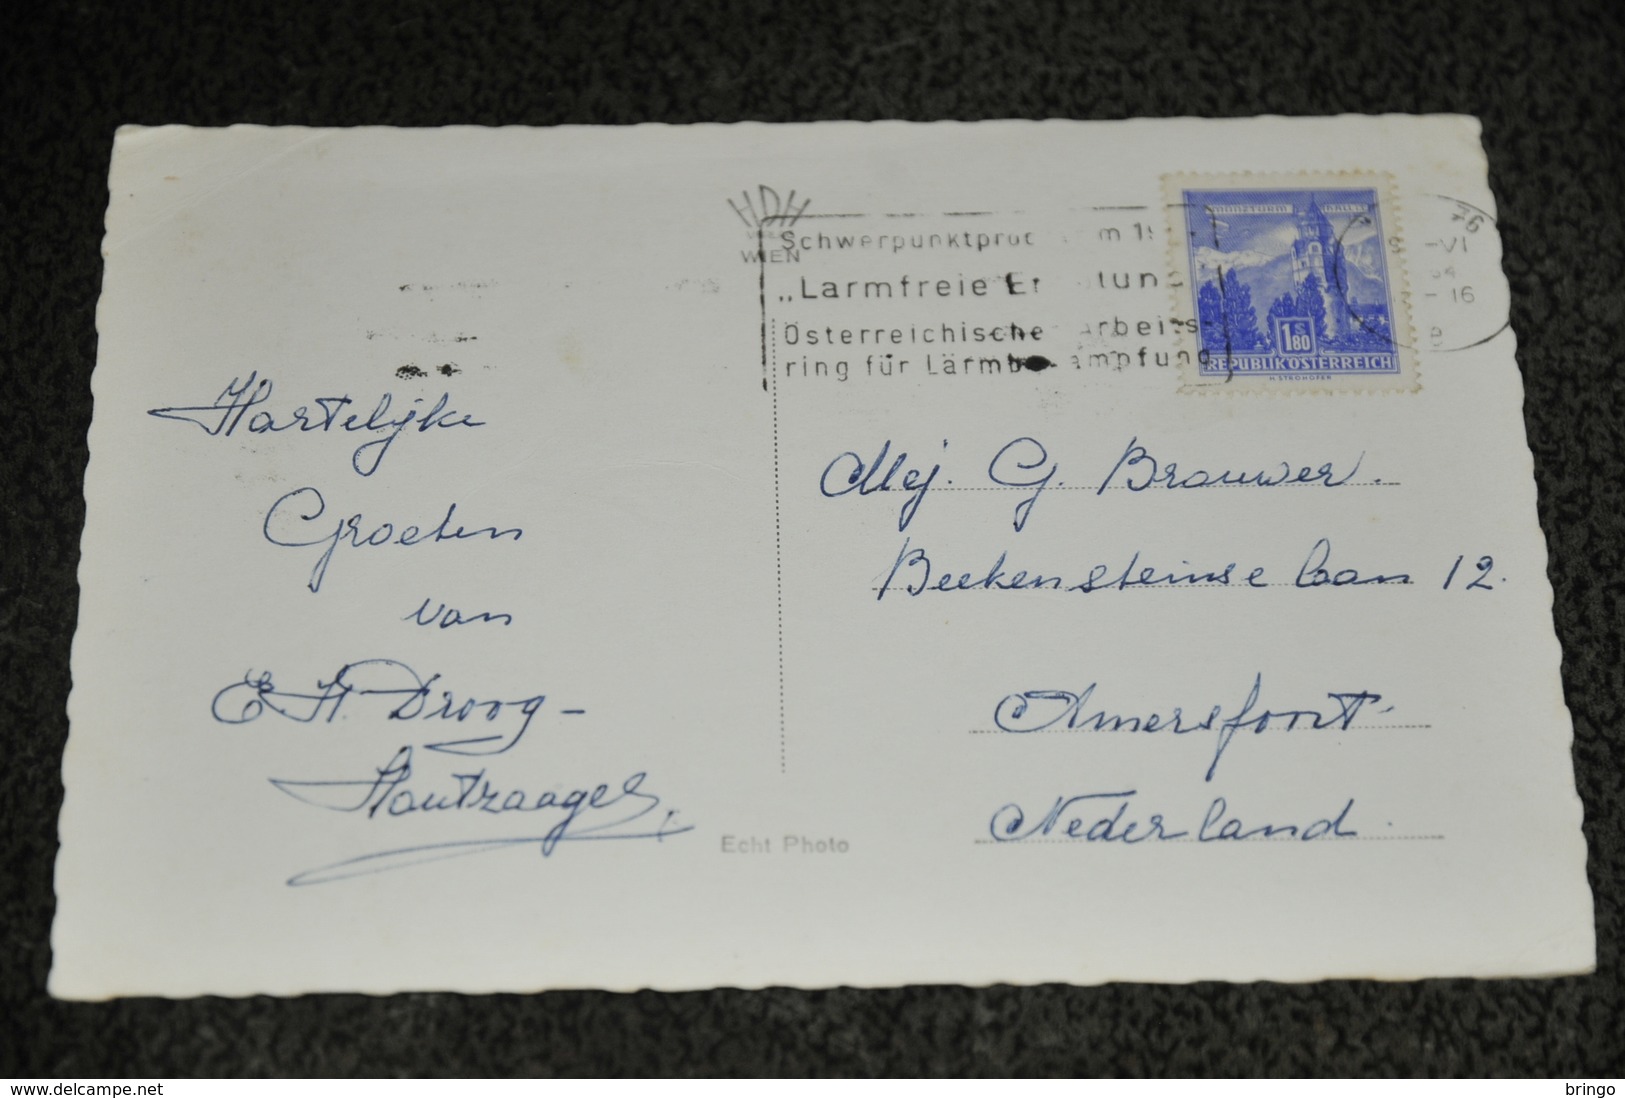 HDH
WIEN
Schwerpunktpro m 19
„Lärmfreie Er
Österreichische Arbeits-
ring für Lärmb kämpfung
MÜNZTURM HALL
1 S 80
REPUBLIK ÖSTERREICH
H. STROHOFER
VI
64
16
Hartelijke
Groeten
van
E. H. Droog -
Houtzaager
Mej. G. Brouwer.
Beekensteinselaan 12.
Amersfoort
Nederland.
Echt Photo
www.delcampe.net
bringo